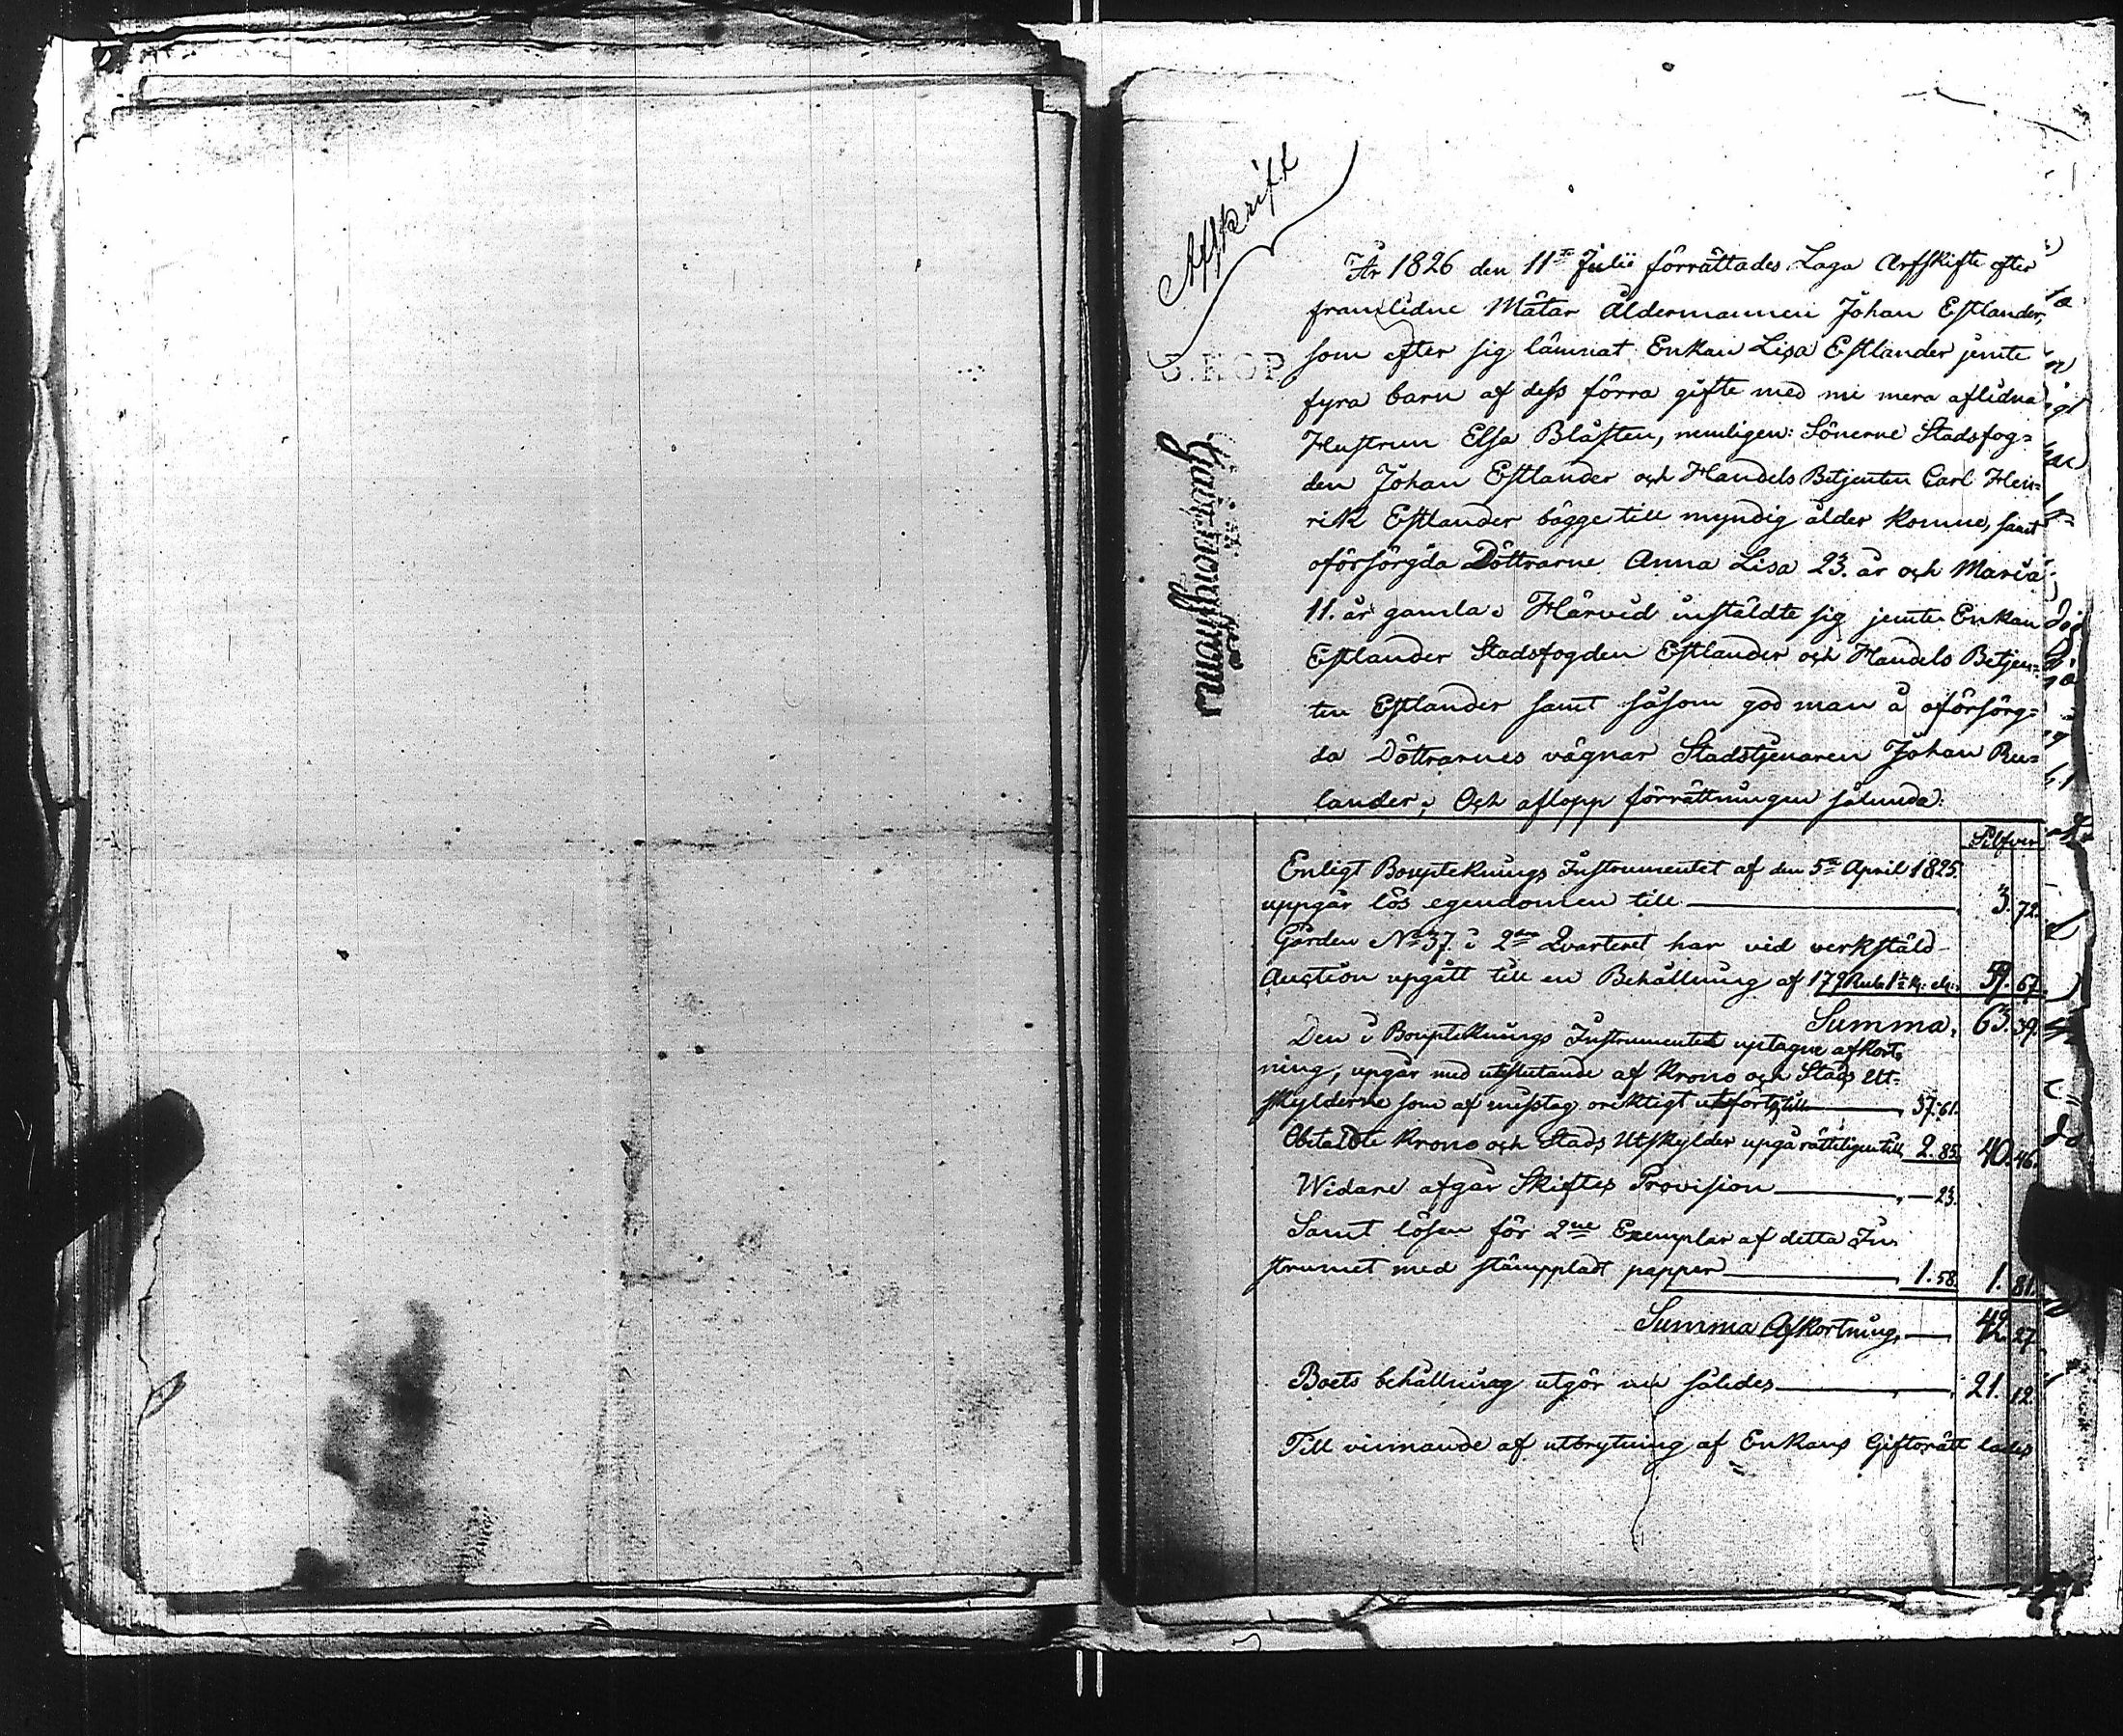 Afskrift
År 1826 den 11te Julii förrättades Laga Arfskifte efter
framlidne Mätar Åldermannen Johan Estlander,
som efter sig lämnat Enkan Lisa Estlander jemte
fyra barn af dess förra gifte med nu mera aflidna
Hustrun Elsa Blåsten, nemligen: Sönerne Stadsfog=
den Johan Estlander och Handels Betjenten Carl Hen=
rik Estlander bägge till myndig ålder komne, samt
oförsörgda Döttrarne Anna Lisa 23. år och Maria
11. år gamla. Härvid instäldte sig jemte Enkan
Estlander Stadsfogden Estlander och Handels Betjen=
ten Estlander samt såsom god man å oförsörg=
da Döttrarnes vägnar Stadstjenaren Johan Ru=
lander; Och aflopp förrättningen sålunda:
Silfver
Enligt Boupteknings Instrumentet af den 5te April 1825.
uppgår lös egendomen till 3. 72.
Gården No 37. i 2dra Qvarteret har vid verkstäld
Auction upgått till en Behållning af 179 Rub. 59. 67.
Summa, 63. 39.
Den i Boupteknings Instrumentet uptagne afkort=
ning, upgår med uteslutande af Krono och Stads Ut=
skylderne som af misstag oriktigt utförts, till 37. 61.
Obetaldte Krono och Stads Utskylder upgå rätteligen till 2. 85. 40. 46.
Widare afgår Skiftes Provision 23.
Samt lösen för 2ne Exemplar af detta In=
strumet med stämppladt papper 1. 58. 1. 81.
Summa Afkortning, 42. 27.
Boets behållning utgör nu således 21. 12.
Till vinnande af utbrytning af Enkans Giftorätt lades